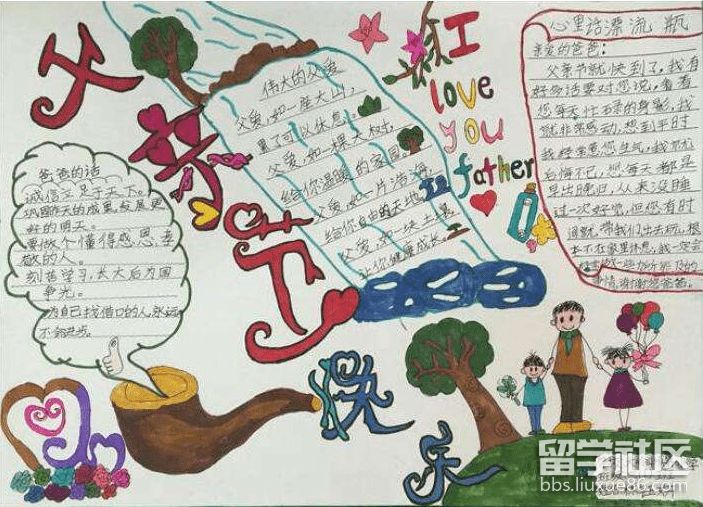 父亲节
快乐
I
love
you
father
伟大的父爱
父爱,如一座大山,
累了可以休息。
父爱,如一棵大树,
给你温暖的家园。
父爱,如一片浩海,
给你自由的天地
父爱,如一块土地
让你健康成长。
心里话漂流瓶
亲爱的爸爸:
父亲节就快到了,我有
好多话要对您说,看着
您每天忙碌的身影,我
就非常感动,想到平时
我经常惹您生气,我都
后悔不已,您每天都是
早出晚归,从来没睡
过一次好觉,但您有时
带我们出去玩,根
本不在家里休息,我一定会
爸爸的话
诚信立足于天下。
巩固昨天的成果,发展更
好的明天。
要做个懂得感恩、孝
敬的人。
刻苦学习,长大后为国
争光。
为自己找借口的人,永远
不会进步。
留学社区
bbs.liuxue86.com